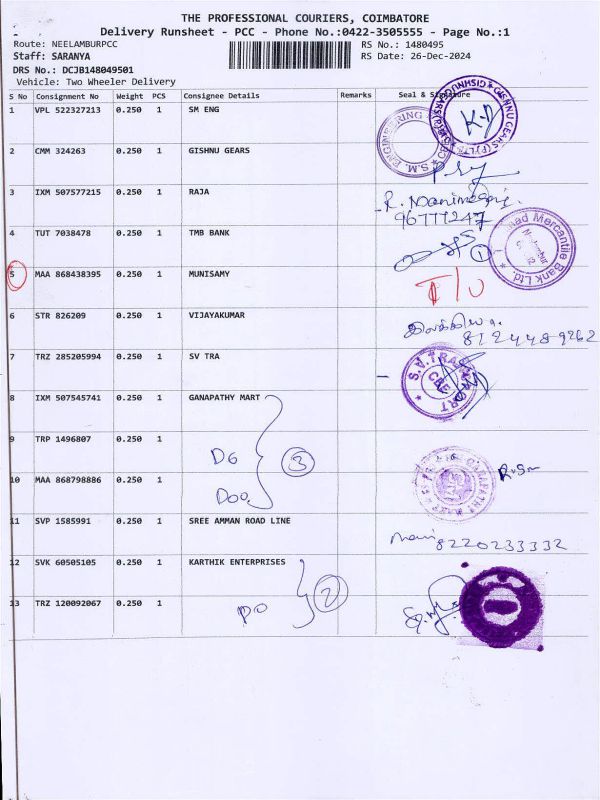 THE PROFESSIONAL COURIERS, COIMBATORE
Delivery Runsheet - PCC - Phone No.:0422-3505555 - Page No.:1
Route: NEELAMBURPCC RS No.: 1480495
Staff: SARANYA RS Date: 26-Dec-2024
DRS No.: DCJB148049501
Vehicle: Two Wheeler Delivery
S No Consignment No Weight PCS Consignee Details Remarks Seal & Signature
1 VPL 522327213 0.250 1 SM ENG
2 CMM 324263 0.250 1 GISHNU GEARS
3 IXM 507577215 0.250 1 RAJA
R. Manimegalai
96777247
4 TUT 7038478 0.250 1 TMB BANK
1
Mercantile Bank Ltd.
5 MAA 868438395 0.250 1 MUNISAMY
6 STR 826209 0.250 1 VIJAYAKUMAR
8124489262
7 TRZ 285205994 0.250 1 SV TRA
S.V.TRANSPORT
CBE
8 IXM 507545741 0.250 1 GANAPATHY MART
9 TRP 1496807 0.250 1
DG
3
10 MAA 868798886 0.250 1
Doo
11 SVP 1585991 0.250 1 SREE AMMAN ROAD LINE
Mani
8220233332
12 SVK 60505105 0.250 1 KARTHIK ENTERPRISES
2
13 TRZ 120092067 0.250 1
DO